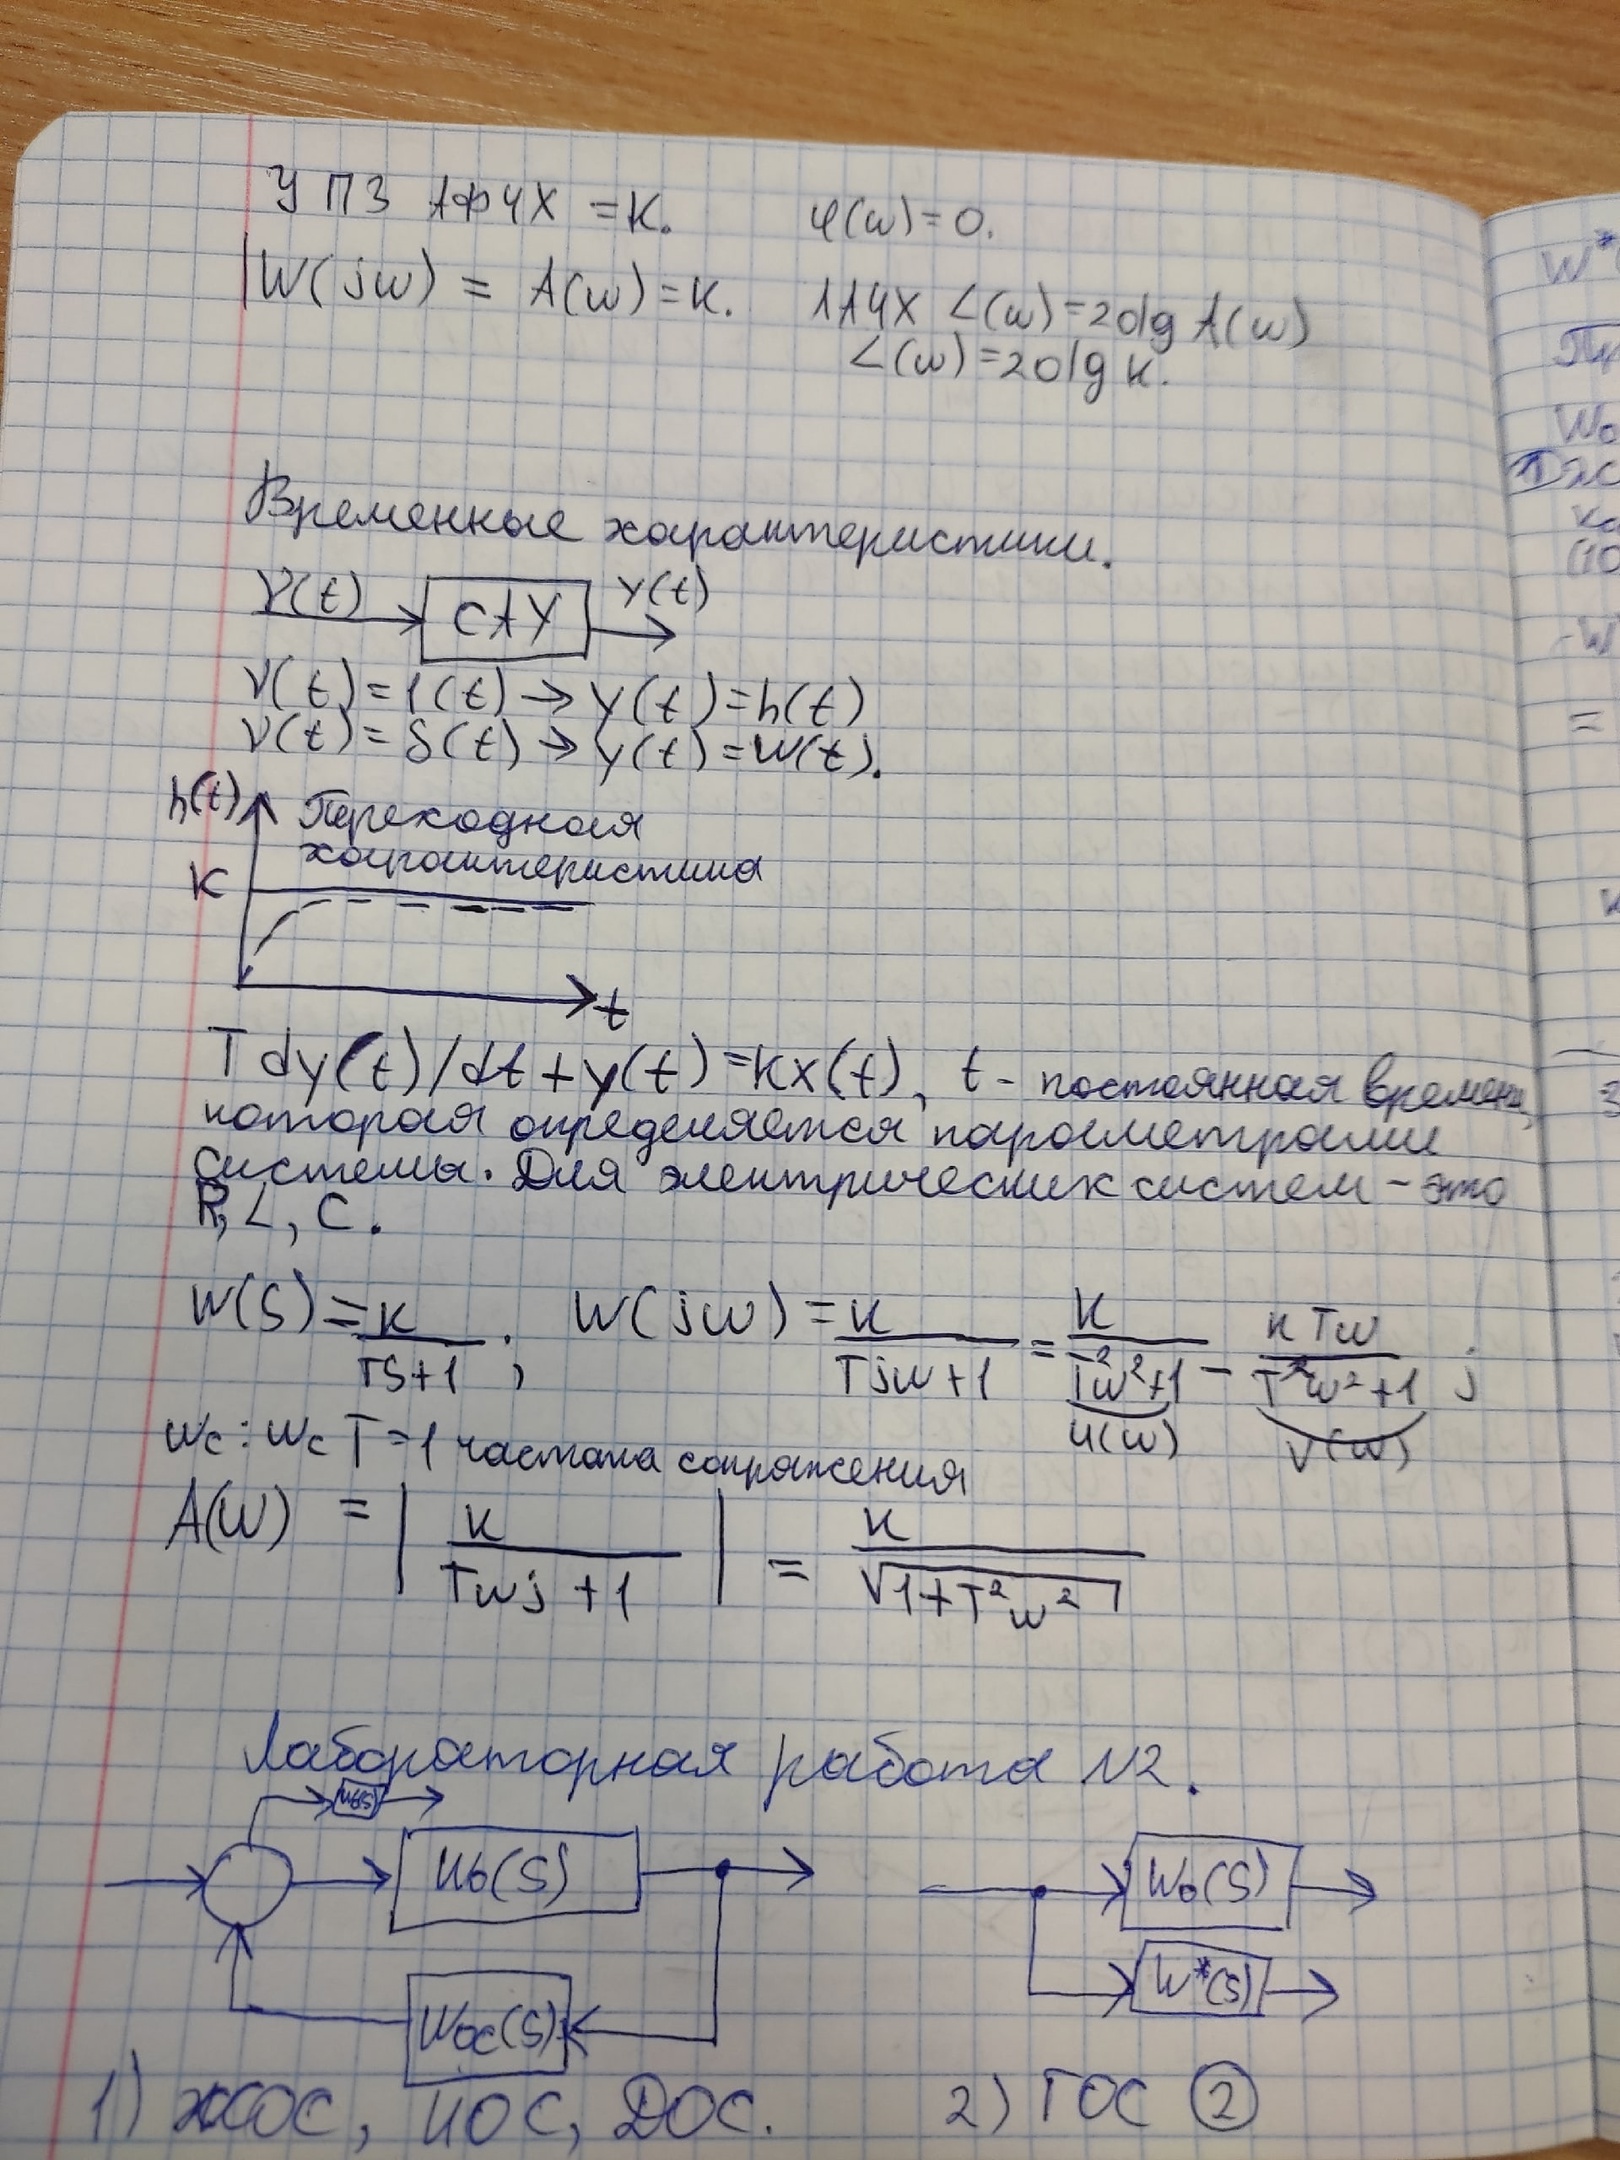 У ПЗ АФЧХ = К. φ(ω) = 0.
|W(jω) = A(ω) = K. ЛАЧХ L(ω) = 20lg A(ω)
L(ω) = 20lg K.
Временные характеристики.
V(t) САУ Y(t)
V(t) = 1(t) → y(t) = h(t)
V(t) = δ(t) → y(t) = W(t).
h(t) Переходная
характеристика
K
t
T dy(t)/dt + y(t) = Kx(t), t - постоянная времени,
которая определяется параметрами
системы. Для электрических систем - это
R, L, C.
W(S) = K/(TS+1); W(jω) = K/(Tjω+1) = K/(T²ω²+1) - KTω/(T²ω²+1) j
U(ω) V(ω)
ωc: ωc T = 1 частота сопряжения
A(ω) = |K/(Tωj+1)| = K/√(1+T²ω²)
Лабораторная работа N2.
Wо(S) Wо(S)
Wос(S) W*(S)
1) ЖОС, ИОС, ДОС. 2) ГОС ②